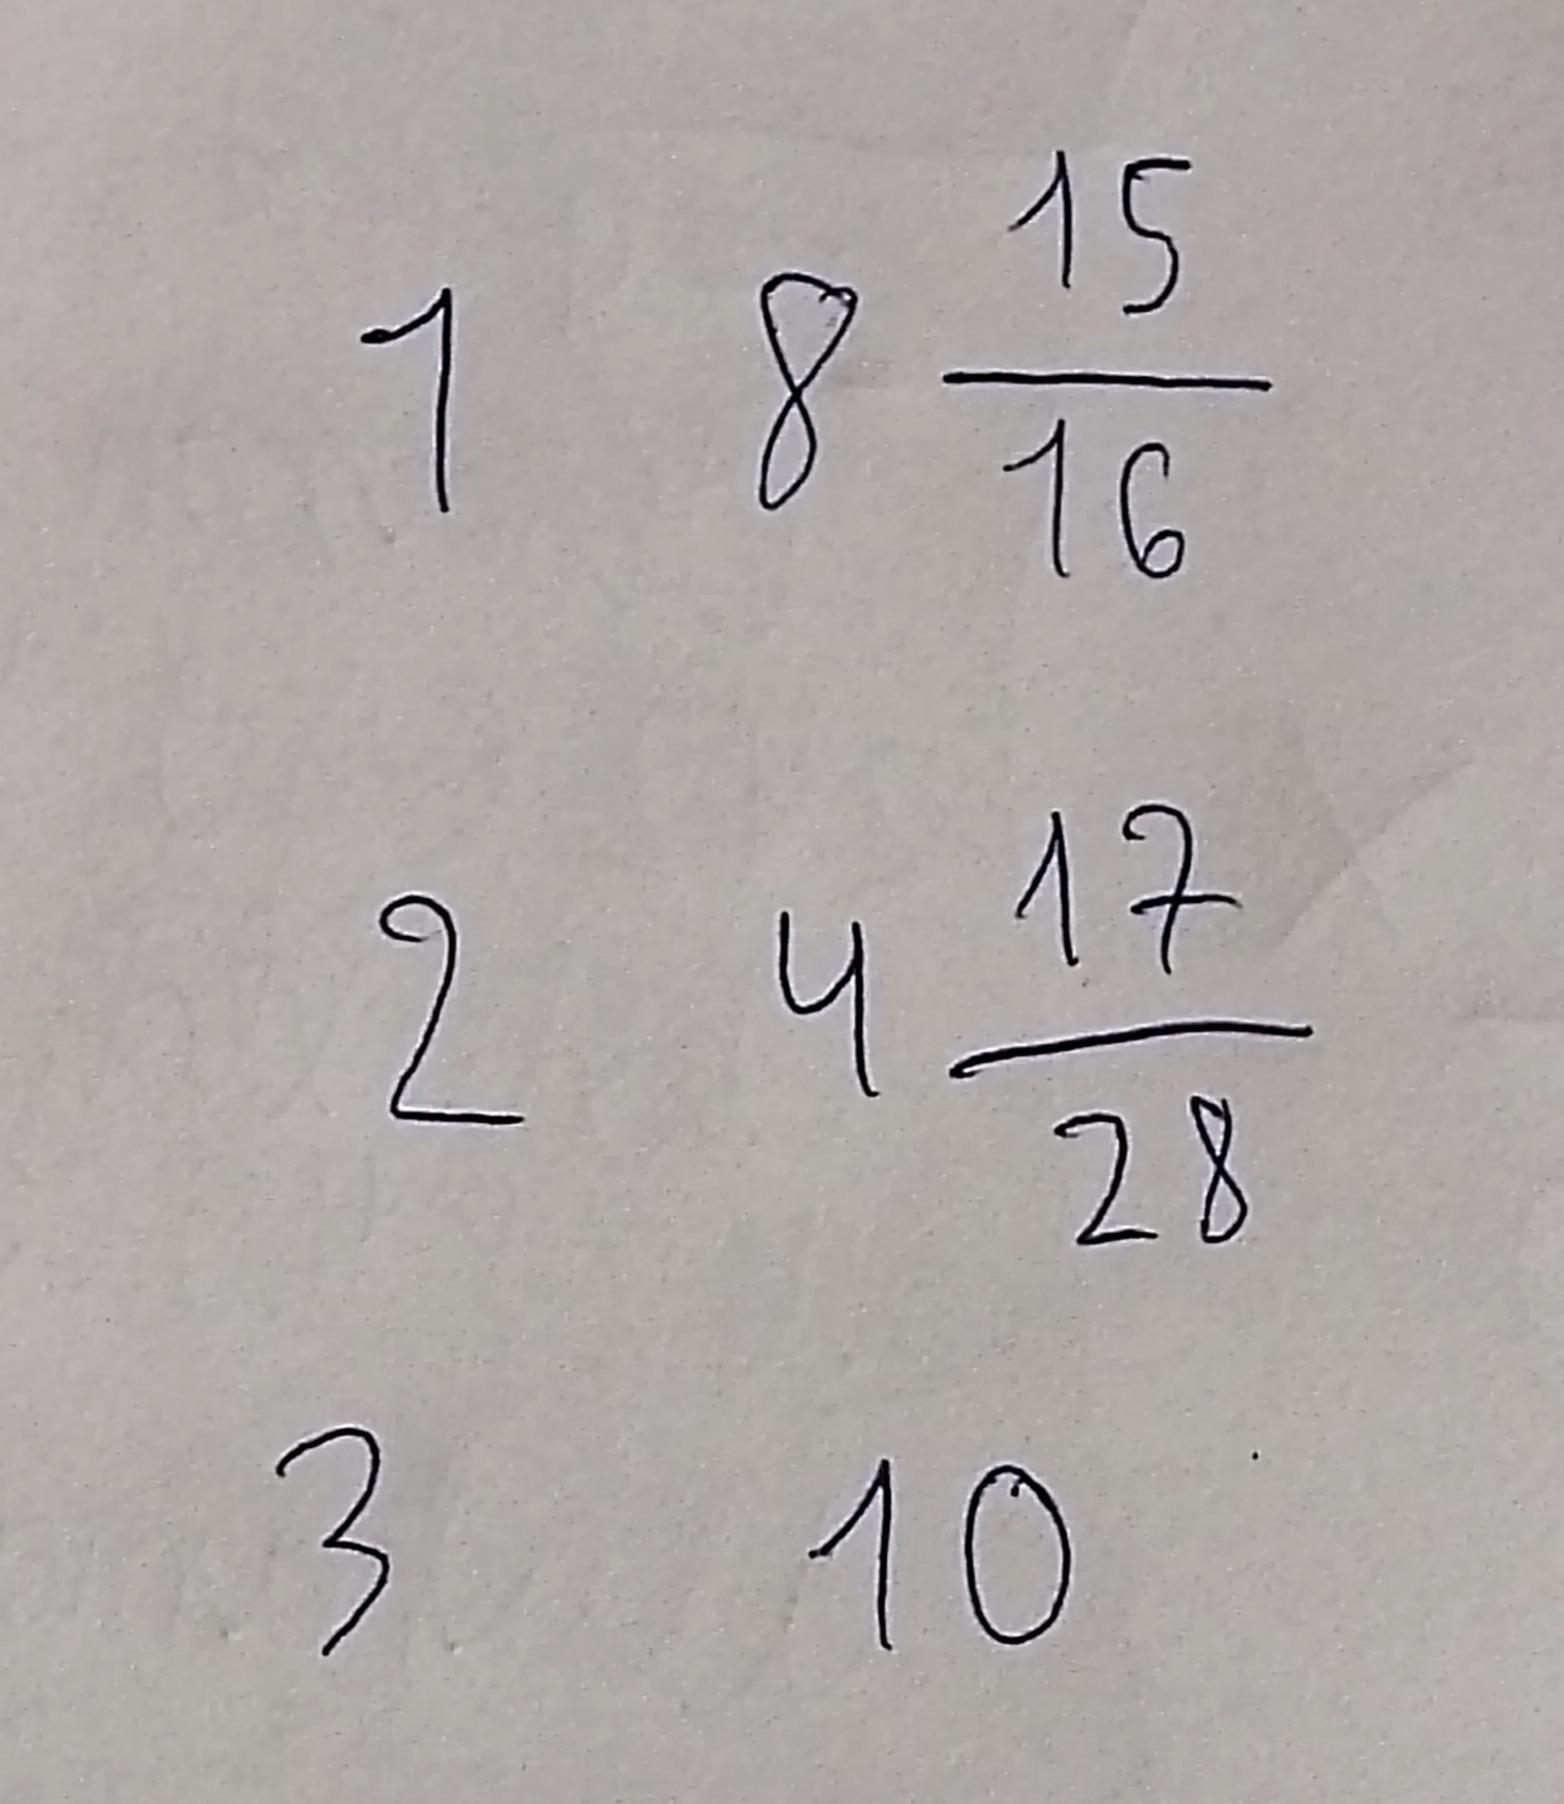 1 8 15/16
2 4 17/28
3 10